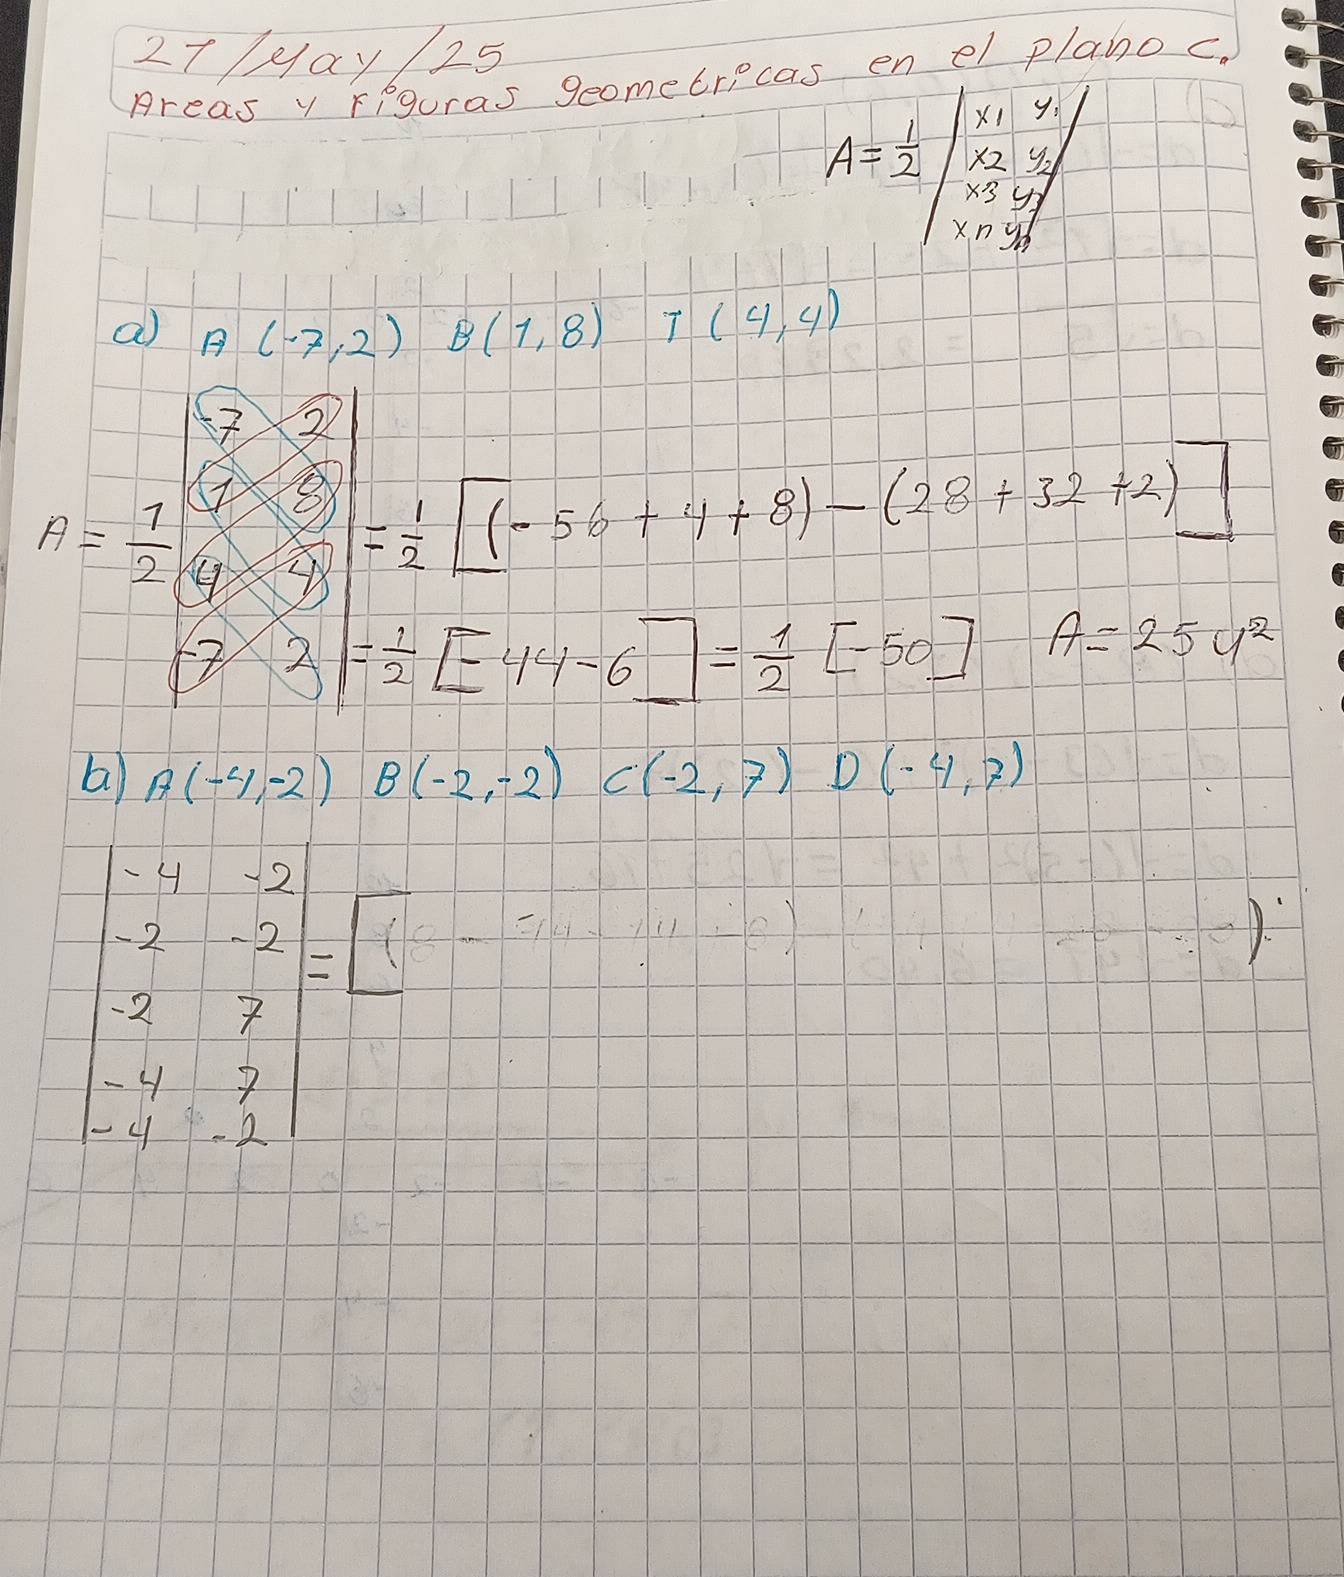 27/May/25
Areas y Figuras geometricas en el plano c.
A = 1/2 | x1 y1
x2 y2
x3 y3
xn yn |
a) A (-7,2) B(1,8) T (4,4)
A = 1/2 | -7 2
1 8
4 4
-7 2 | = 1/2 [(-56 + 4 + 8) - (28 + 32 + 2)]
= 1/2 [-44-6] = 1/2 [-50] A = 25 u²
b) A(-4,-2) B(-2,-2) C(-2,7) D(-4,7)
| -4 -2
-2 -2
-2 7
-4 7
-4 -2 | = [(